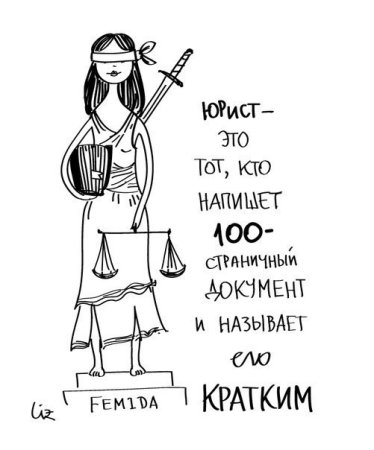 ЮРИСТ–
ЭТО
ТОТ, КТО
НАПИШЕТ
100-
СТРАНИЧНЫЙ
ДОКУМЕНТ
И НАЗЫВАЕТ
его
КРАТКИМ
FEMIDA
Liz